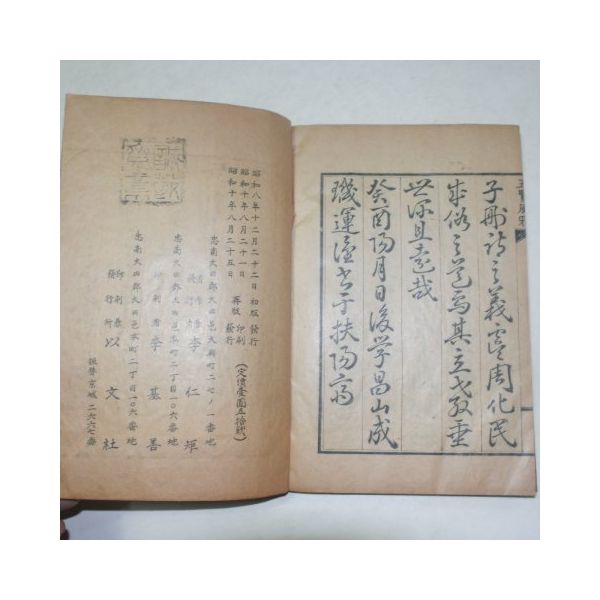 子刪詩之義處周化民
成俗之道焉其立教垂
世深且遠哉
癸酉陽月日後學昌山成
璣運謹書于扶陽齋
昭和八年十二月二十二日初版發行
昭和十年八月二十一日再版印刷
昭和十年八月二十五日發行
(定價壹圓五拾錢)
忠南大田郡大田邑大興町二七ノ一番地
發行者李仁矩
忠南大田郡大田邑本町二丁目一〇六番地
印刷者李基善
忠南大田郡大田邑本町二丁目一〇六番地
印刷兼發行所以文社
振替京城二六六七番